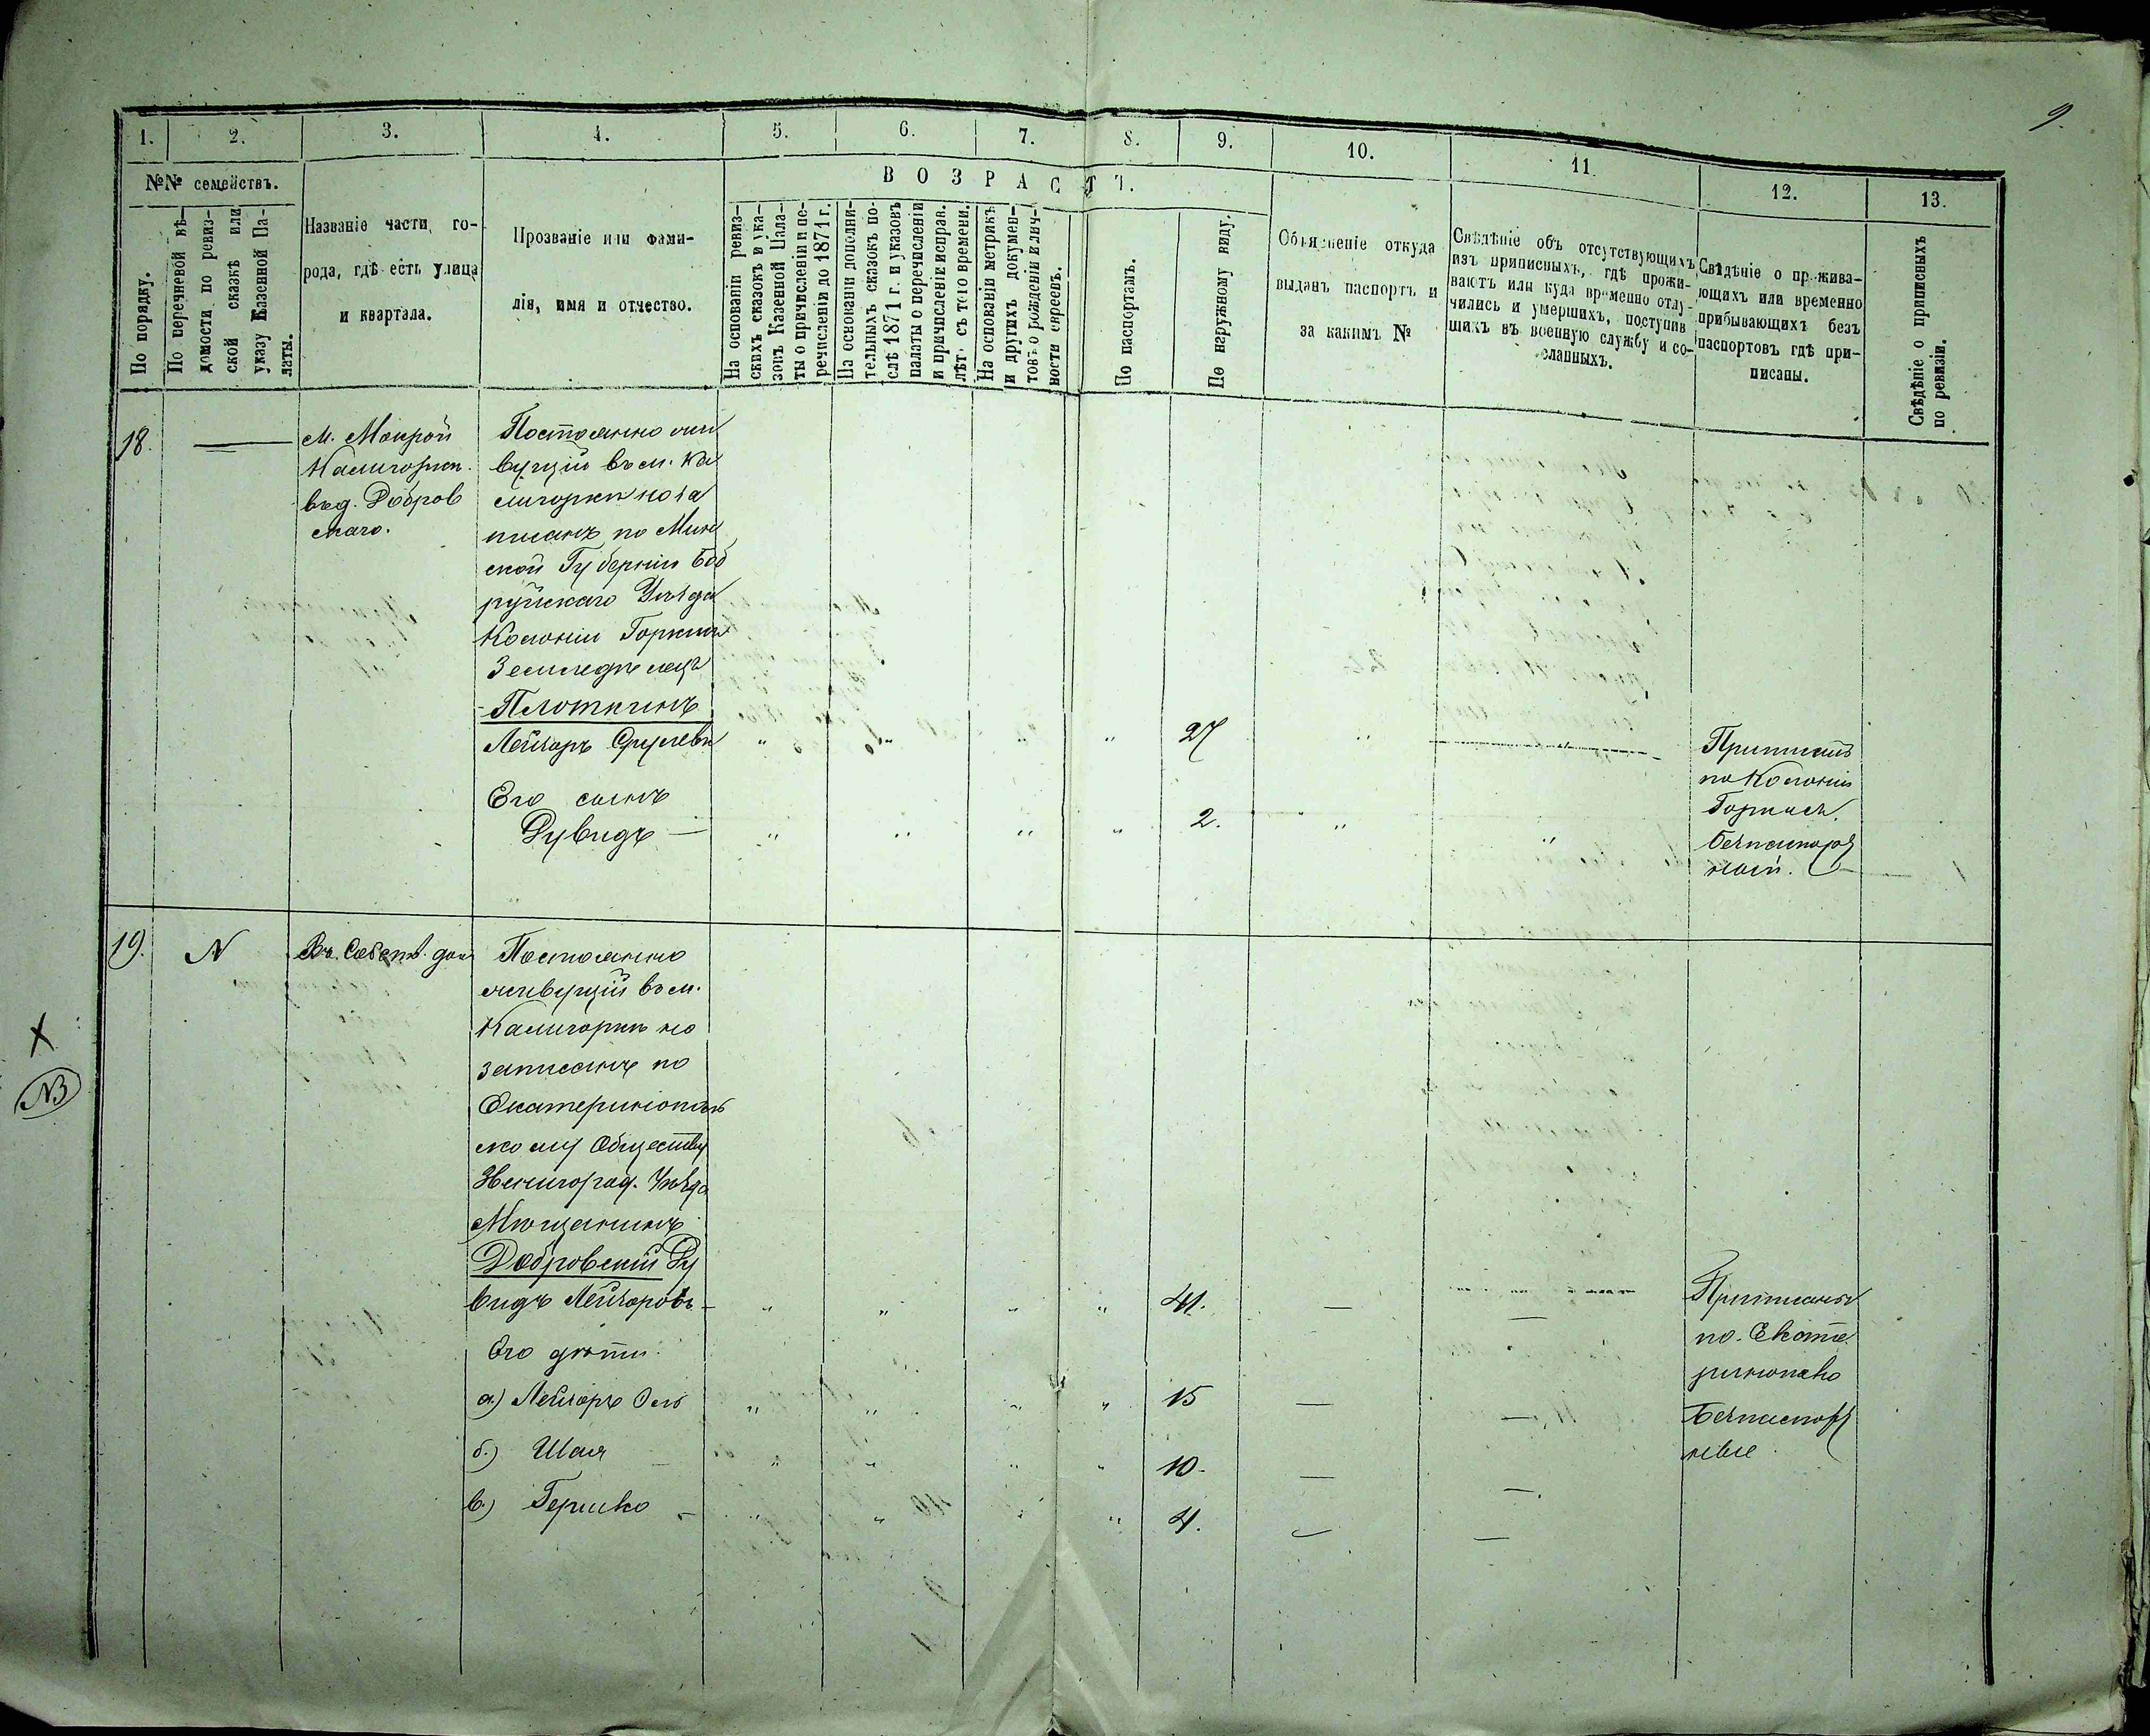 9.
1. 2. 3. 4. 5. 6. 7. 8. 9. 10. 11. 12. 13.
№№ семействъ.
По порядку.
По перечневой вѣ-
домости по ревиз-
ской сказкѣ или
указу Казенной Па-
латы.
Названіе части го-
рода, гдѣ есть улица
и квартала.
Прозваніе или фами-
лія, имя и отчество.
ВОЗРАСТЪ.
На основаніи ревиз-
скихъ сказокъ и ука-
зовъ Казенной Пала-
ты о причисленіи и пе-
речисленіи до 1871 г.
На основаніи дополни-
тельныхъ сказокъ по-
слѣ 1871 г. и указовъ
палаты о перечисленіи
и причисленіе исправ.
лѣт. съ того времени.
На основаніи метрикъ
и другихъ докумен-
товъ о рожденіи и лич-
ности евреевъ.
По паспортамъ.
По наружному виду.
Объясненіе откуда
выданъ паспортъ и
за какимъ №
Свѣдѣніе объ отсутствующихъ
изъ приписныхъ, гдѣ прожи-
ваютъ или куда временно отлу-
чились и умершихъ, поступив
шихъ въ военную службу и со-
сланныхъ.
Свѣдѣніе о прожива-
ющихъ или временно
прибывающихъ безъ
паспортовъ гдѣ при-
писаны.
Свѣдѣніе о приписныхъ
по ревизіи.
18.
м. Мокрой
Калигорки
вѣд. Добров
скаго.
Постоянно жи
вущій въ м. Ка
лигоркѣ но за
писанъ по Мин
ской Губерніи Боб
руйскаго Уѣзда
Колоніи Горки
Земледѣлецъ
Плоткинъ
Лейзоръ Срулевъ " " " " 27 " "
Приписанъ
по Колоніи
Горкыя.
Безпаспорт
ный.
Его сынъ
Дувидъ — " " " " 2. " "
19. N Въ Собств. дом
Постоянно
живущій въ м.
Калигоркѣ но
записанъ по
Екатеринополь
скому Обществу
Звенигород. Уѣзда
Мѣщанинъ
Добровскій Ду
видъ Лейзоровъ - " " " " 41. — —
Приписаны
по Екате
ринополю
Безпаспорт
ные
Его дѣти
а.) Лейзоръ " " " " 15 — —
б.) Шая " " " " 10. — —
в.) Гершко " " " " 4. — —
X
NB